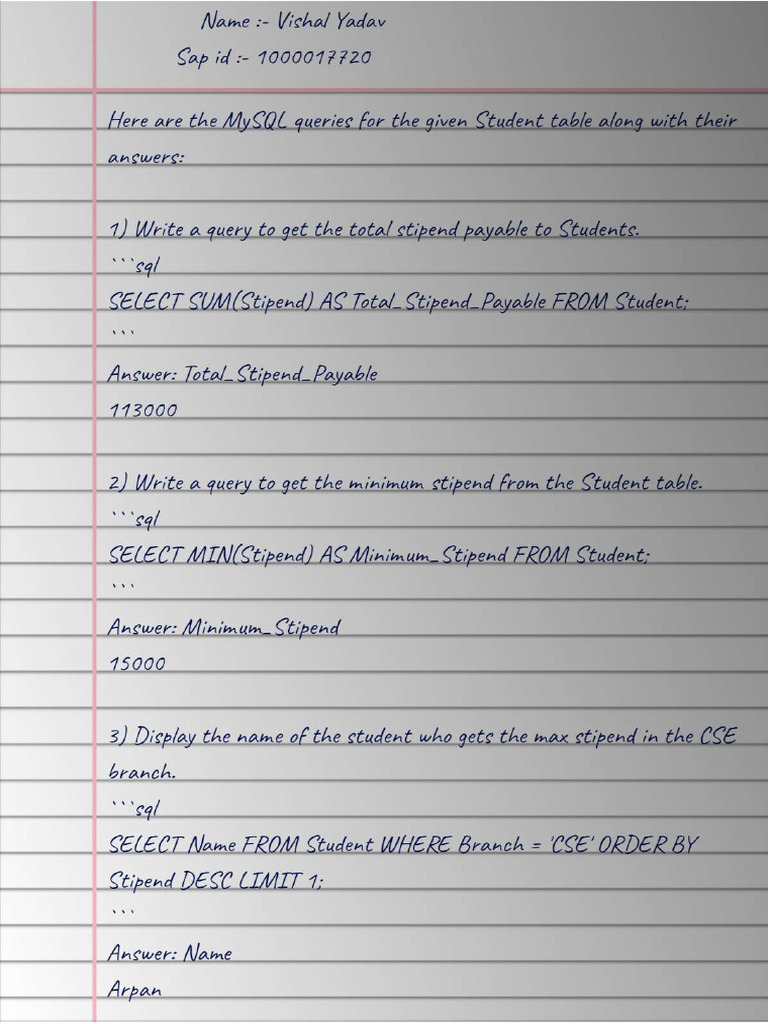 Name :- Vishal Yadav
Sap id :- 1000017720
Here are the MySQL queries for the given Student table along with their
answers:
1) Write a query to get the total stipend payable to Students.
```sql
SELECT SUM(Stipend) AS Total_Stipend_Payable FROM Student;
```
Answer: Total_Stipend_Payable
113000
2) Write a query to get the minimum stipend from the Student table.
```sql
SELECT MIN(Stipend) AS Minimum_Stipend FROM Student;
```
Answer: Minimum_Stipend
15000
3) Display the name of the student who gets the max stipend in the CSE
branch.
```sql
SELECT Name FROM Student WHERE Branch = 'CSE' ORDER BY
Stipend DESC LIMIT 1;
```
Answer: Name
Arpan